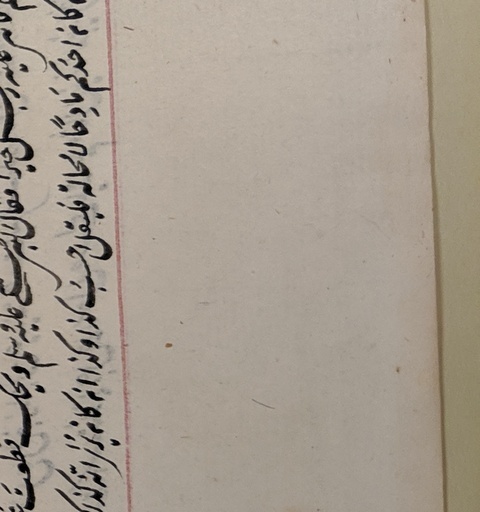 عليه رجل خيرا فقال النبي صلى عليه وسلم ويحك قطعت
كان احدكم مادحا لا محالة فليقل احسب كذا وكذا ان كان يرى انه كذلك